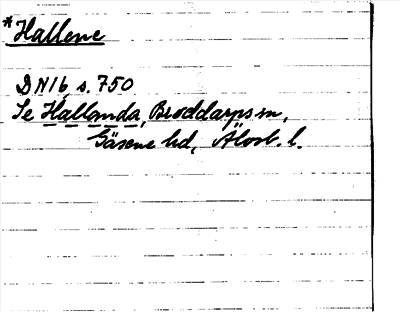 *Hallene
DN16 s. 750
Se Hallanda, Broddarps sn,
Gäsene hd, Älvsb. l.